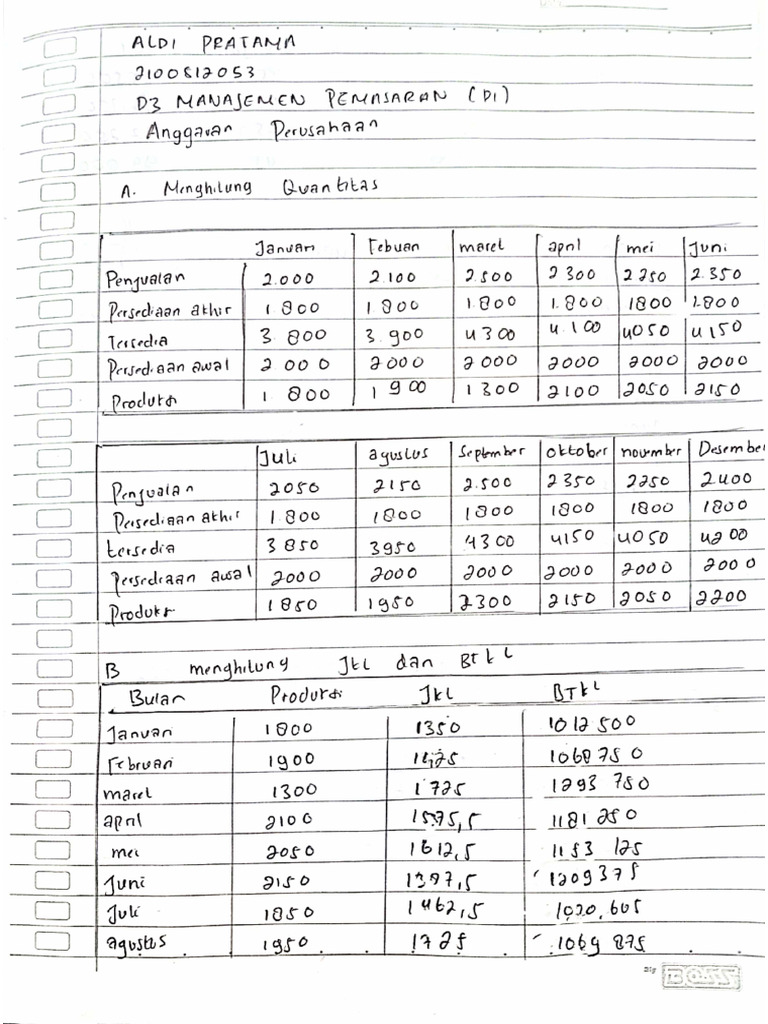 ALDI PRATAMA
2100812053
D3 MANAJEMEN PEMASARAN (D1)
Anggaran Perusahaan
A. Menghitung Quantitas
Januari Febuari maret april mei Juni
Penjualan 2.000 2.100 2.500 2300 2250 2.350
Persediaan akhir 1.800 1.800 1.800 1.800 1800 1.800
Tersedia 3.800 3.900 4300 4.100 4050 4150
Persediaan awal 2000 2000 2000 2000 2000 2000
Produksi 1.800 1900 1300 2100 2050 2150
Juli agustus September oktober november Desember
Penjualan 2050 2150 2.500 2350 2250 2400
Persediaan akhir 1.800 1800 1800 1800 1800 1800
tersedia 3850 3950 4300 4150 4050 4200
Persediaan awal 2000 2000 2000 2000 2000 2000
Produksi 1850 1950 2300 2150 2050 2200
B menghitung Jkl dan BTKL
Bulan Produksi Jkl BTKL
Januari 1800 1350 1012500
Februari 1900 1425 1068750
maret 1300 1725 1293 750
april 2100 1575,5 1181 250
mei 2050 1612,5 1153 125
Juni 2150 1397,5 1209375
Juli 1850 1462,5
agustus 1950 1725 1069 875
BOSS